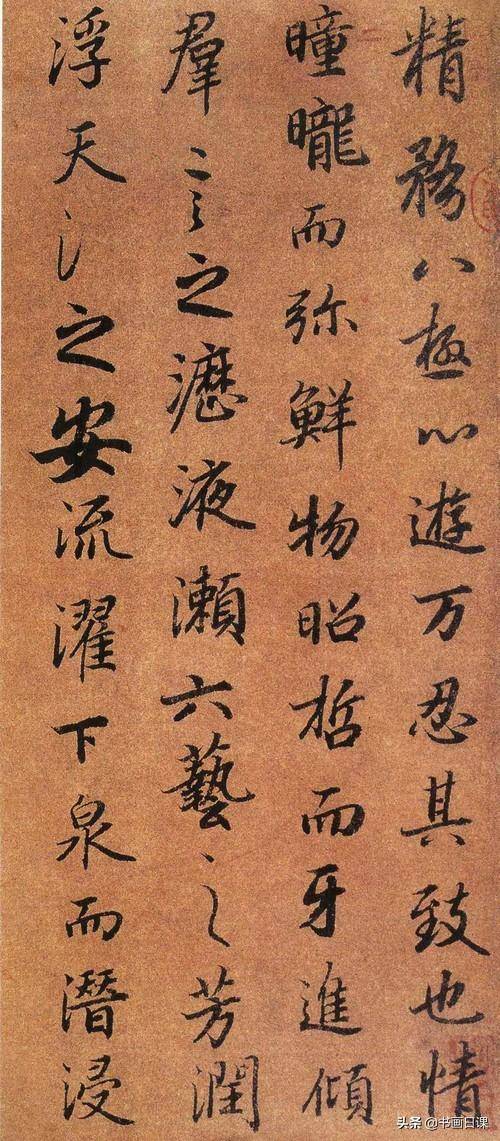 精務八極心遊万忍其致也情
曈曨而弥鮮物昭哲而牙進傾
羣言之瀝液瀨六藝之芳潤
浮天之安流濯下泉而潛浸
头条 @书画日课